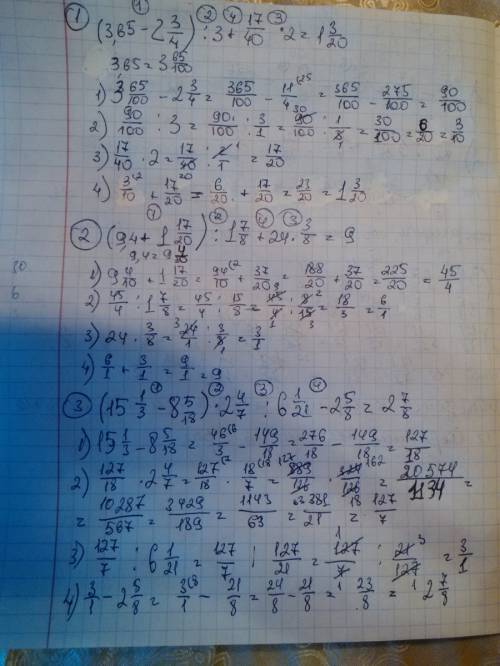 ① (3,65 - 2 3/4) : 3 + 17/40 · 2 = 1 3/20
3,65 = 3 65/100
1) 3 65/100 - 2 3/4 = 365/100 - 11/4 = 365/100 - 275/100 = 90/100
2) 90/100 : 3 = 90/100 : 3/1 = 90/100 · 1/3 = 30/100 = 6/20 = 3/10
3) 17/40 · 2 = 17/40 · 2/1 = 17/20
4) 3/10 + 17/20 = 6/20 + 17/20 = 23/20 = 1 3/20
② (9,4 + 1 17/20) : 1 7/8 + 24 · 3/8 = 9
1) 9 4/10 + 1 17/20 = 94/10 + 37/20 = 188/20 + 37/20 = 225/20 = 45/4
2) 45/4 : 1 7/8 = 45/4 : 15/8 = 45/4 · 8/15 = 18/3 = 6/1
3) 24 · 3/8 = 24/1 · 3/8 = 3/1
4) 6/1 + 3/1 = 9/1 = 9
③ (15 1/3 - 8 5/18) · 2 4/7 : 6 1/21 - 2 5/8 = 2 7/8
1) 15 1/3 - 8 5/18 = 46/3 - 149/18 = 276/18 - 149/18 = 127/18
2) 127/18 · 2 4/7 = 127/18 · 18/7 = 20574/1134 =
= 10287/567 = 3429/189 = 1143/63 = 381/21 = 127/7
3) 127/7 : 6 1/21 = 127/7 : 127/21 = 127/7 · 21/127 = 3/1
4) 3/1 - 2 5/8 = 3/1 - 21/8 = 24/8 - 21/8 = 23/8 = 2 7/8